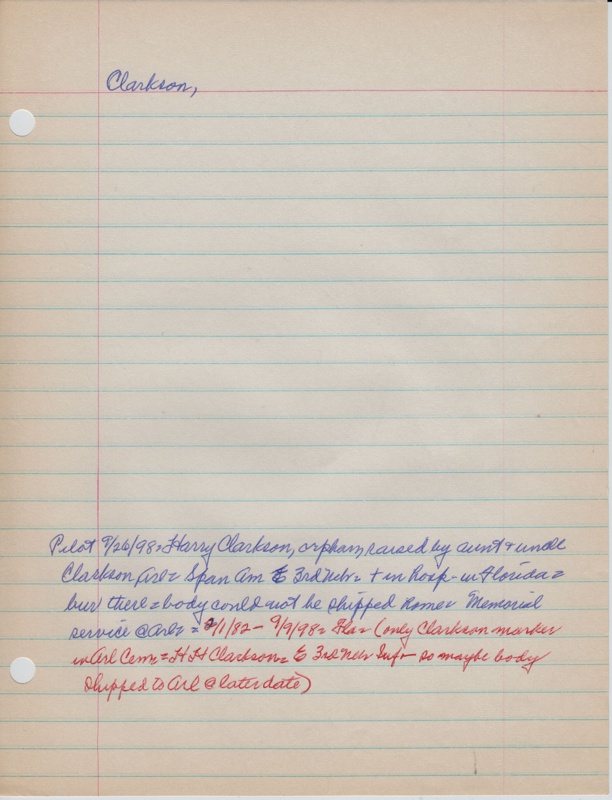 Clarkson,
Pilot 9/26/98 = Harry Clarkson, orphan, raised by aunt + uncle
Clarkson, Arl = Span Am E 3rd Nebr = + in Hosp - in Florida =
bur there = body could not be shipped home = Memorial
service @ Arl = 2/1/82 - 9/9/98 = Fla = (only Clarkson marker
in Arl Cem = H H Clarkson = E 3rd Nebr Inf - so maybe body
shipped to Arl @ later date)